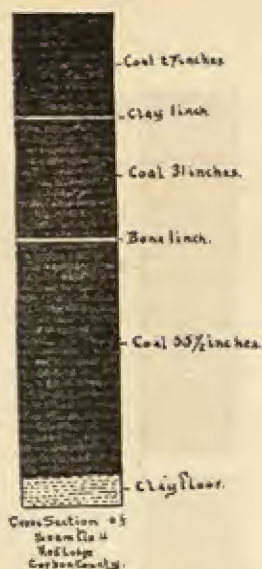 Coal 27 inches
Clay 1 inch
Coal 31 inches.
Bone 1 inch.
Coal 55½ inches
Clay Floor.
Cross Section of
Seam No 4
Red Lodge
Carbon County.